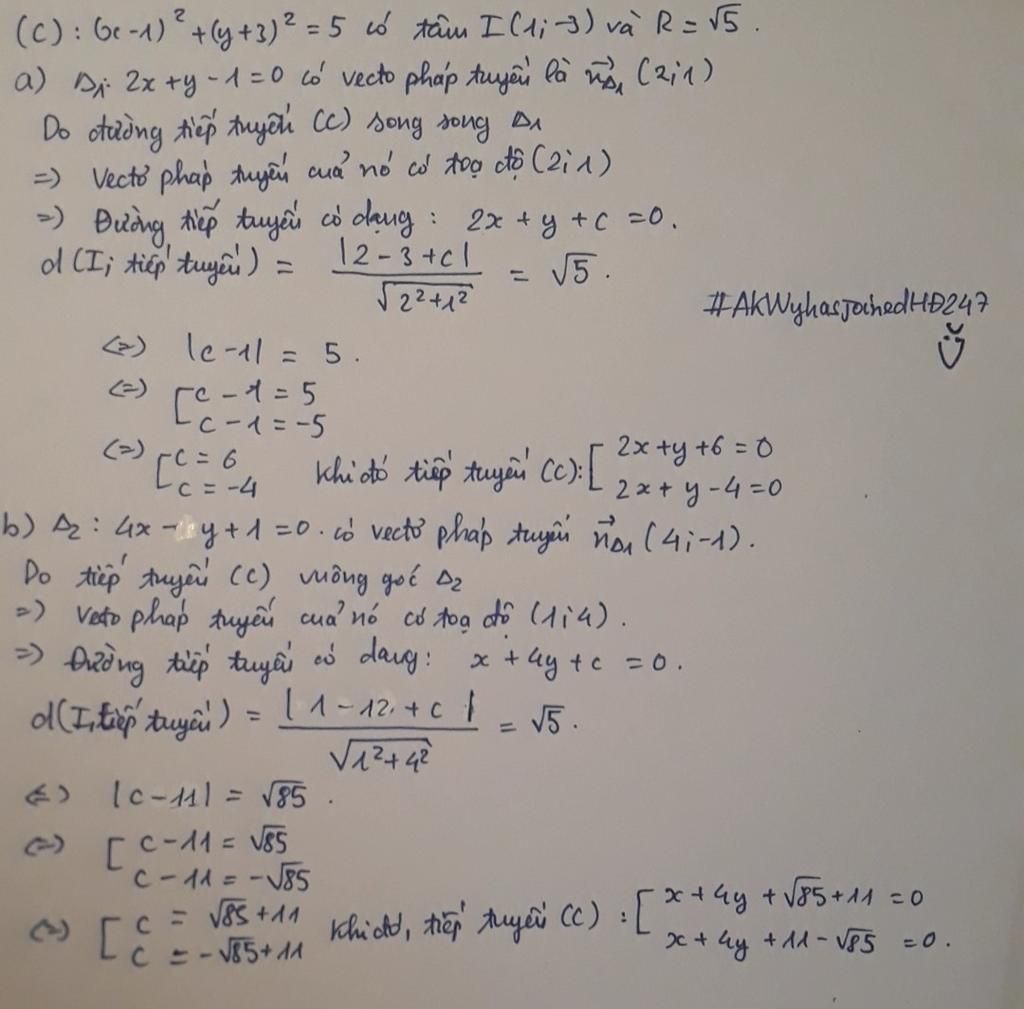 (C): (x-1)² + (y+3)² = 5 có tâm I(1;-3) và R = √5.
a) Δ₁: 2x + y - 1 = 0 có vecto pháp tuyến là n⃗Δ₁ (2;1)
Do đường tiếp tuyến (C) song song Δ₁
=) Vectơ pháp tuyến cuả nó có toạ độ (2;1)
=) Đường tiếp tuyến có dạng: 2x + y + c = 0.
d(I; tiếp tuyến) = |2 - 3 + c| / √(2² + 1²) = √5.
#AkWyhasjoinedHĐ247
(=) |c - 1| = 5.
(=) [ c - 1 = 5
c - 1 = -5
(=) [ c = 6
c = -4
Khi đó tiếp tuyến (C): [ 2x + y + 6 = 0
2x + y - 4 = 0
b) Δ₂: 4x - y + 1 = 0. có vectơ pháp tuyến n⃗Δ₁ (4;-1).
Do tiếp tuyến (C) vuông góc Δ₂
=) Vecto pháp tuyến cuả nó có toạ độ (1;4).
=) Đường tiếp tuyến có dạng: x + 4y + c = 0.
d(I, tiếp tuyến) = |1 - 12 + c| / √(1² + 4²) = √5.
(=) |c - 11| = √85.
(=) [ c - 11 = √85
c - 11 = -√85
(=) [ c = √85 + 11
c = -√85 + 11
Khi đó, tiếp tuyến (C): [ x + 4y + √85 + 11 = 0
x + 4y + 11 - √85 = 0.